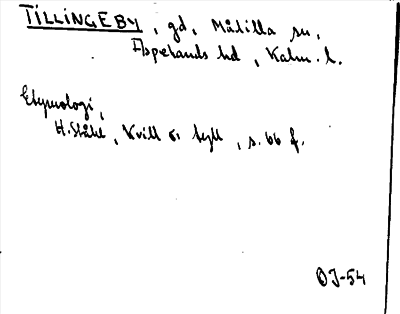 TILLINGEBY, gd, Målilla sn,
Aspelands hd, Kalm. l.
Etymologi,
H. Ståhl, Kvill o. tyll, s. 66 f.
OJ-54